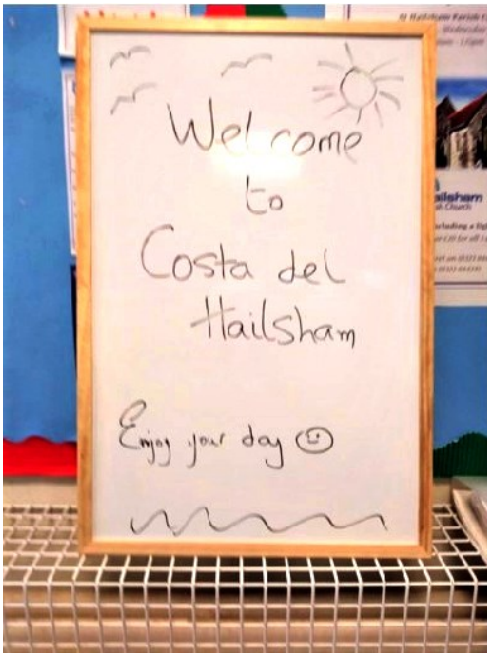 Welcome
to
Costa del
Hailsham
Enjoy your day
Hailsham
ailsham
Church